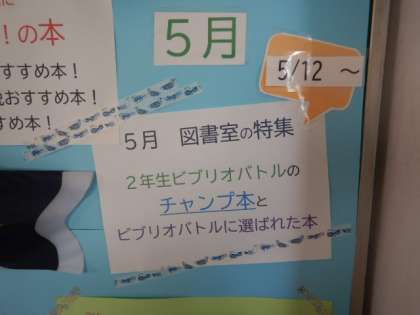 ！の本
すすめ本！
おすすめ本！
すめ本！
５月
5/12 ～
５月 図書室の特集
２年生ビブリオバトルの
チャンプ本と
ビブリオバトルに選ばれた本